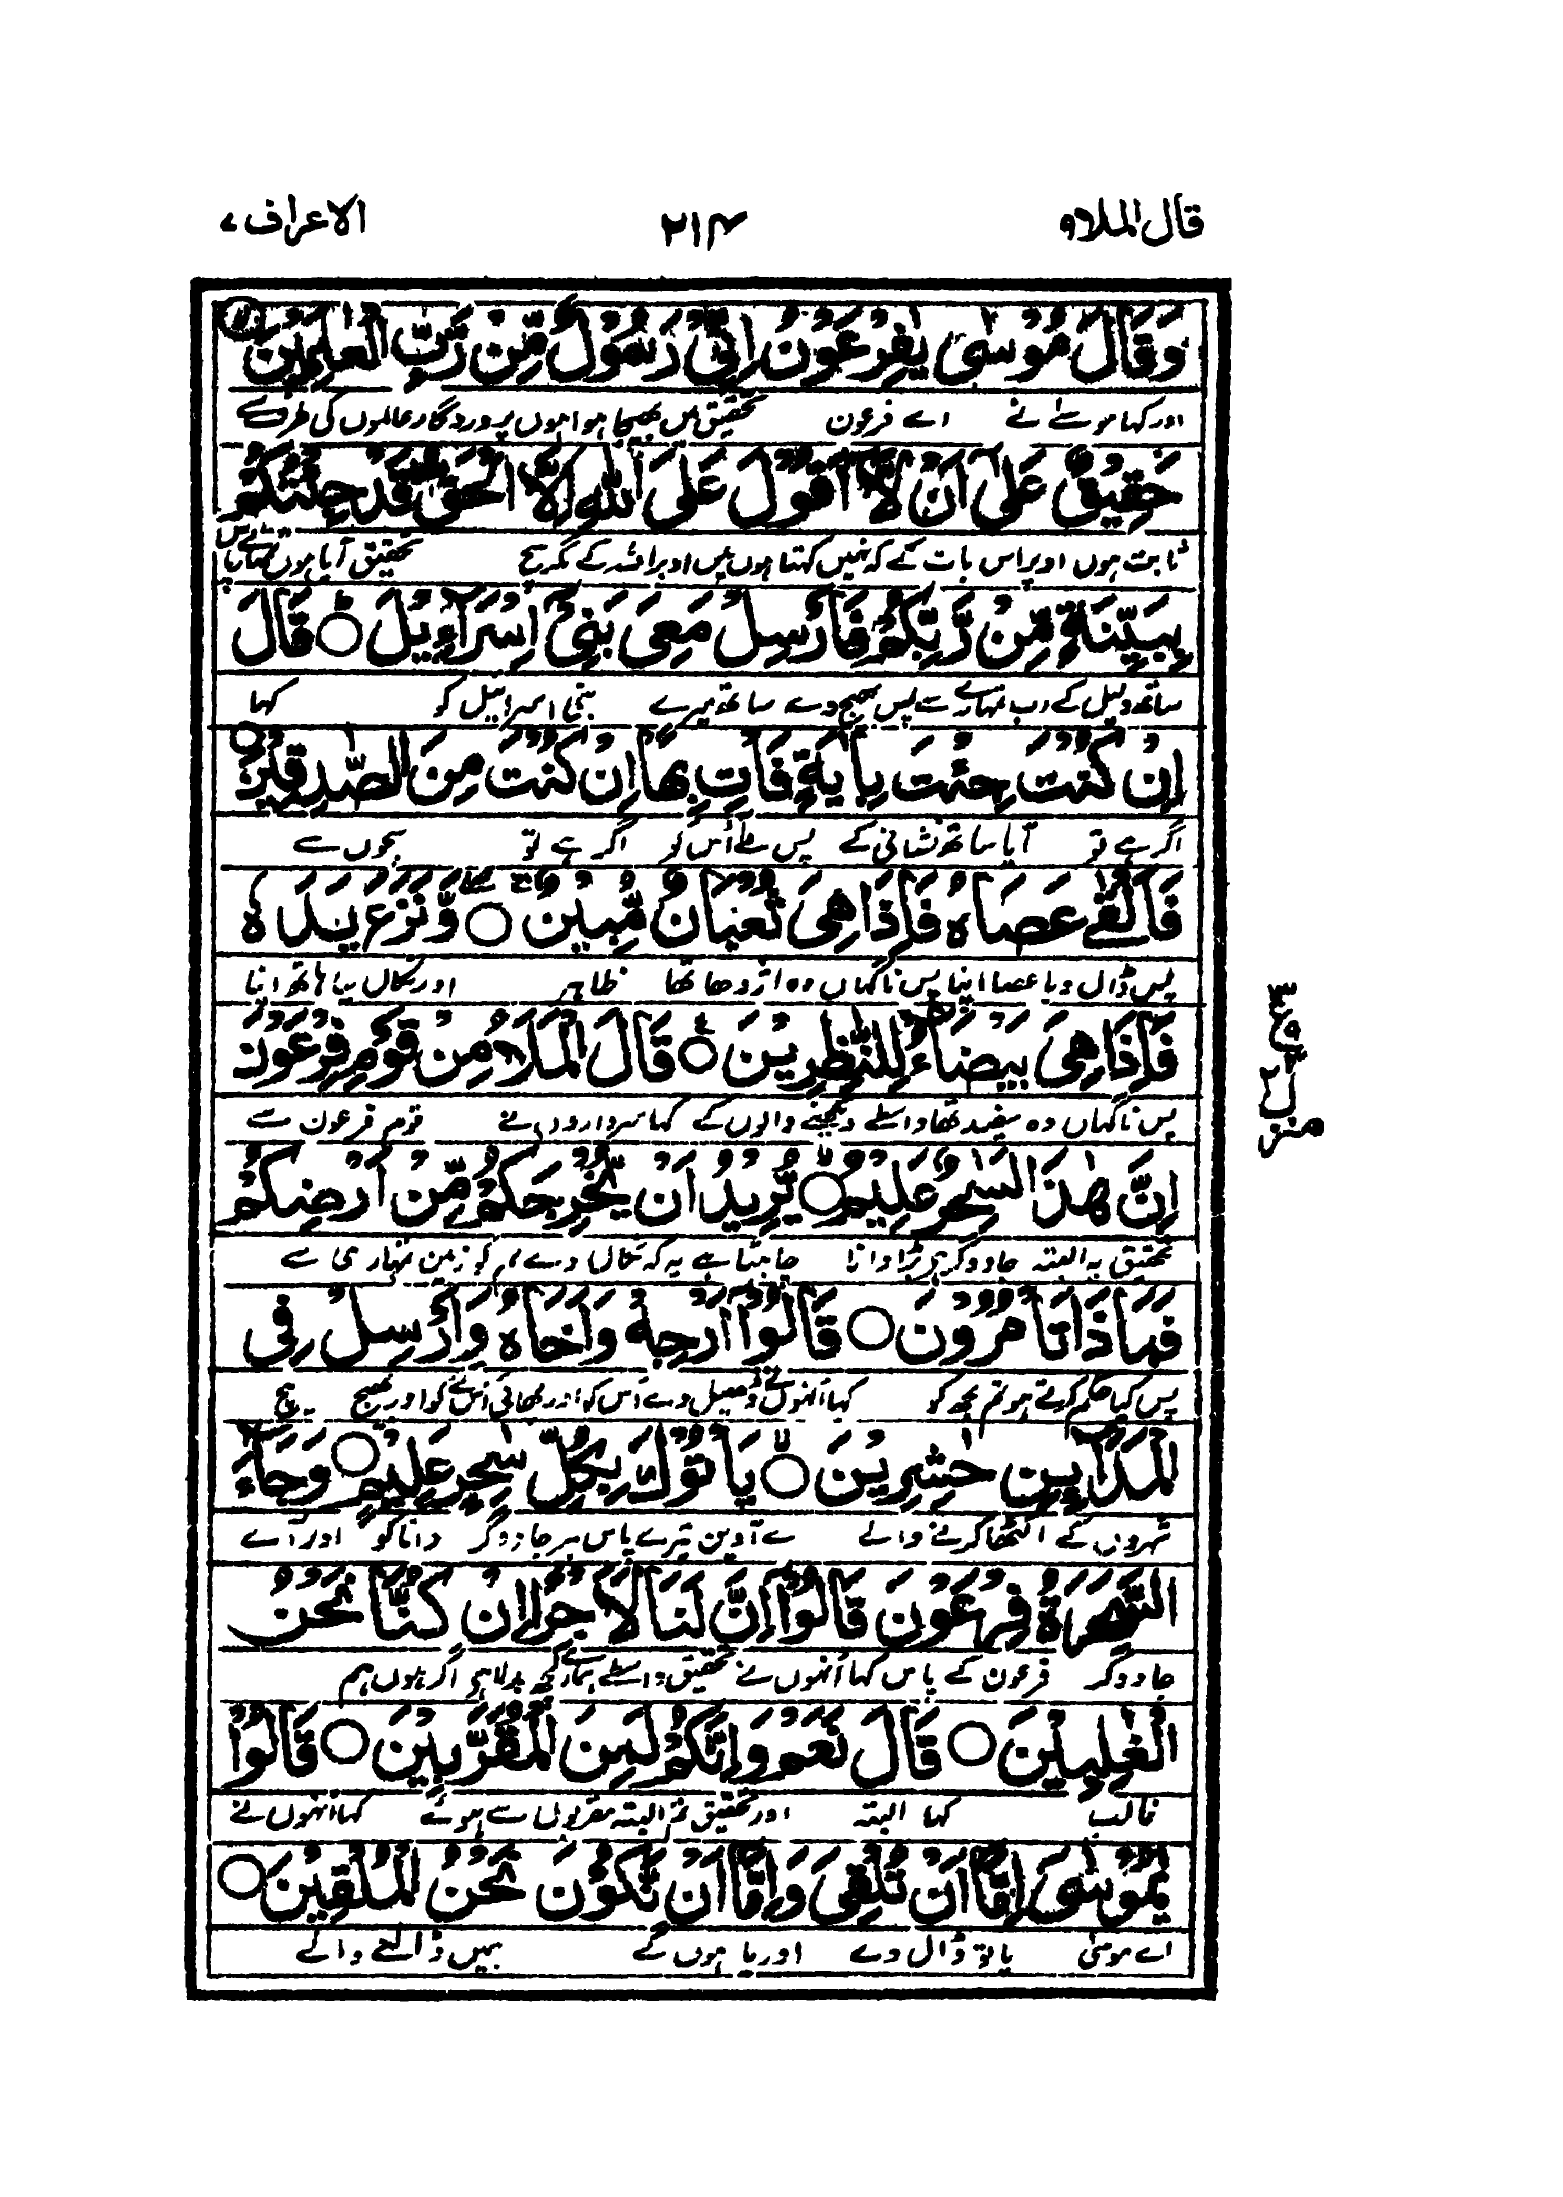 قال الملا ۹
۲۱۴
الاعراف ۷
وَقَالَ مُوْسٰى يٰفِرْعَوْنُ اِنِّىْ رَسُوْلٌ مِّنْ رَّبِّ الْعٰلَمِيْنَ
اور کہا موسےٰ نے اے فرعون تحقیق میں بھیجا ہوا ہوں پروردگار عالموں کی طرف سے
حَقِيْقٌ عَلٰٓى اَنْ لَّآ اَقُوْلَ عَلَى اللّٰهِ اِلَّا الْحَقَّ قَدْ جِئْتُكُمْ
ثابت ہوں اوپر اس بات کے کہ نہیں کہتا ہوں میں اوپر اللہ کے مگر سچ تحقیق آیا ہوں تمہارے پاس
بِبَيِّنَةٍ مِّنْ رَّبِّكُمْ فَاَرْسِلْ مَعِىَ بَنِىْٓ اِسْرَآءِيْلَ ۝ قَالَ
ساتھ دلیل کے رب تمہارے سے پس بھیج دے ساتھ میرے بنی اسرائیل کو کہا
اِنْ كُنْتَ جِئْتَ بِاٰيَةٍ فَاْتِ بِهَآ اِنْ كُنْتَ مِنَ الصّٰدِقِيْنَ ۝
اگر ہے تو آیا ساتھ نشانی کے پس لے اُس کو اگر ہے تو سچوں سے
فَاَلْقٰى عَصَاهُ فَاِذَا هِىَ ثُعْبَانٌ مُّبِيْنٌ ۝ وَّنَزَعَ يَدَهٗ
پس ڈال دیا عصا اپنا پس ناگہاں وہ اژدھا تھا ظاہر اور نکال لیا ہاتھ اپنا
فَاِذَا هِىَ بَيْضَآءُ لِلنّٰظِرِيْنَ ۝ قَالَ الْمَلَاُ مِنْ قَوْمِ فِرْعَوْنَ
پس ناگہاں وہ سفید تھا واسطے دیکھنے والوں کے کہا سرداروں نے قوم فرعون سے
اِنَّ هٰذَا لَسٰحِرٌ عَلِيْمٌ ۝ يُّرِيْدُ اَنْ يُّخْرِجَكُمْ مِّنْ اَرْضِكُمْ
تحقیق یہ البتہ جادوگر ہے بڑا دانا چاہتا ہے یہ کہ نکال دے تم کو زمین تمہاری سے
فَمَاذَا تَاْمُرُوْنَ ۝ قَالُوْٓا اَرْجِهْ وَاَخَاهُ وَاَرْسِلْ فِى
پس کیا حکم کرتے ہو تم مجھ کو کہا انہوں نے ڈھیل دے اُس کو اور بھائی اُس کے کو اور بھیج بیچ
الْمَدَآئِنِ حٰشِرِيْنَ ۝ يَاْتُوْكَ بِكُلِّ سٰحِرٍ عَلِيْمٍ ۝ وَجَآءَ
شہروں کے اکٹھا کرنے والے لے آویں تیرے پاس ہر جادوگر دانا کو اور آئے
السَّحَرَةُ فِرْعَوْنَ قَالُوْٓا اِنَّ لَنَا لَاَجْرًا اِنْ كُنَّا نَحْنُ
جادوگر فرعون کے پاس کہا انہوں نے تحقیق واسطے ہمارے کچھ بدلا ہے اگر ہوں ہم
الْغٰلِبِيْنَ ۝ قَالَ نَعَمْ وَاِنَّكُمْ لَمِنَ الْمُقَرَّبِيْنَ ۝ قَالُوْا
غالب کہا البتہ اور تحقیق تم البتہ مقربوں سے ہو گے کہا انہوں نے
يٰمُوْسٰٓى اِمَّآ اَنْ تُلْقِىَ وَاِمَّآ اَنْ نَّكُوْنَ نَحْنُ الْمُلْقِيْنَ ۝
اے موسیٰ یا تو ڈال دے اور یا ہوں گے ہمیں ڈالنے والے
منزل ۲